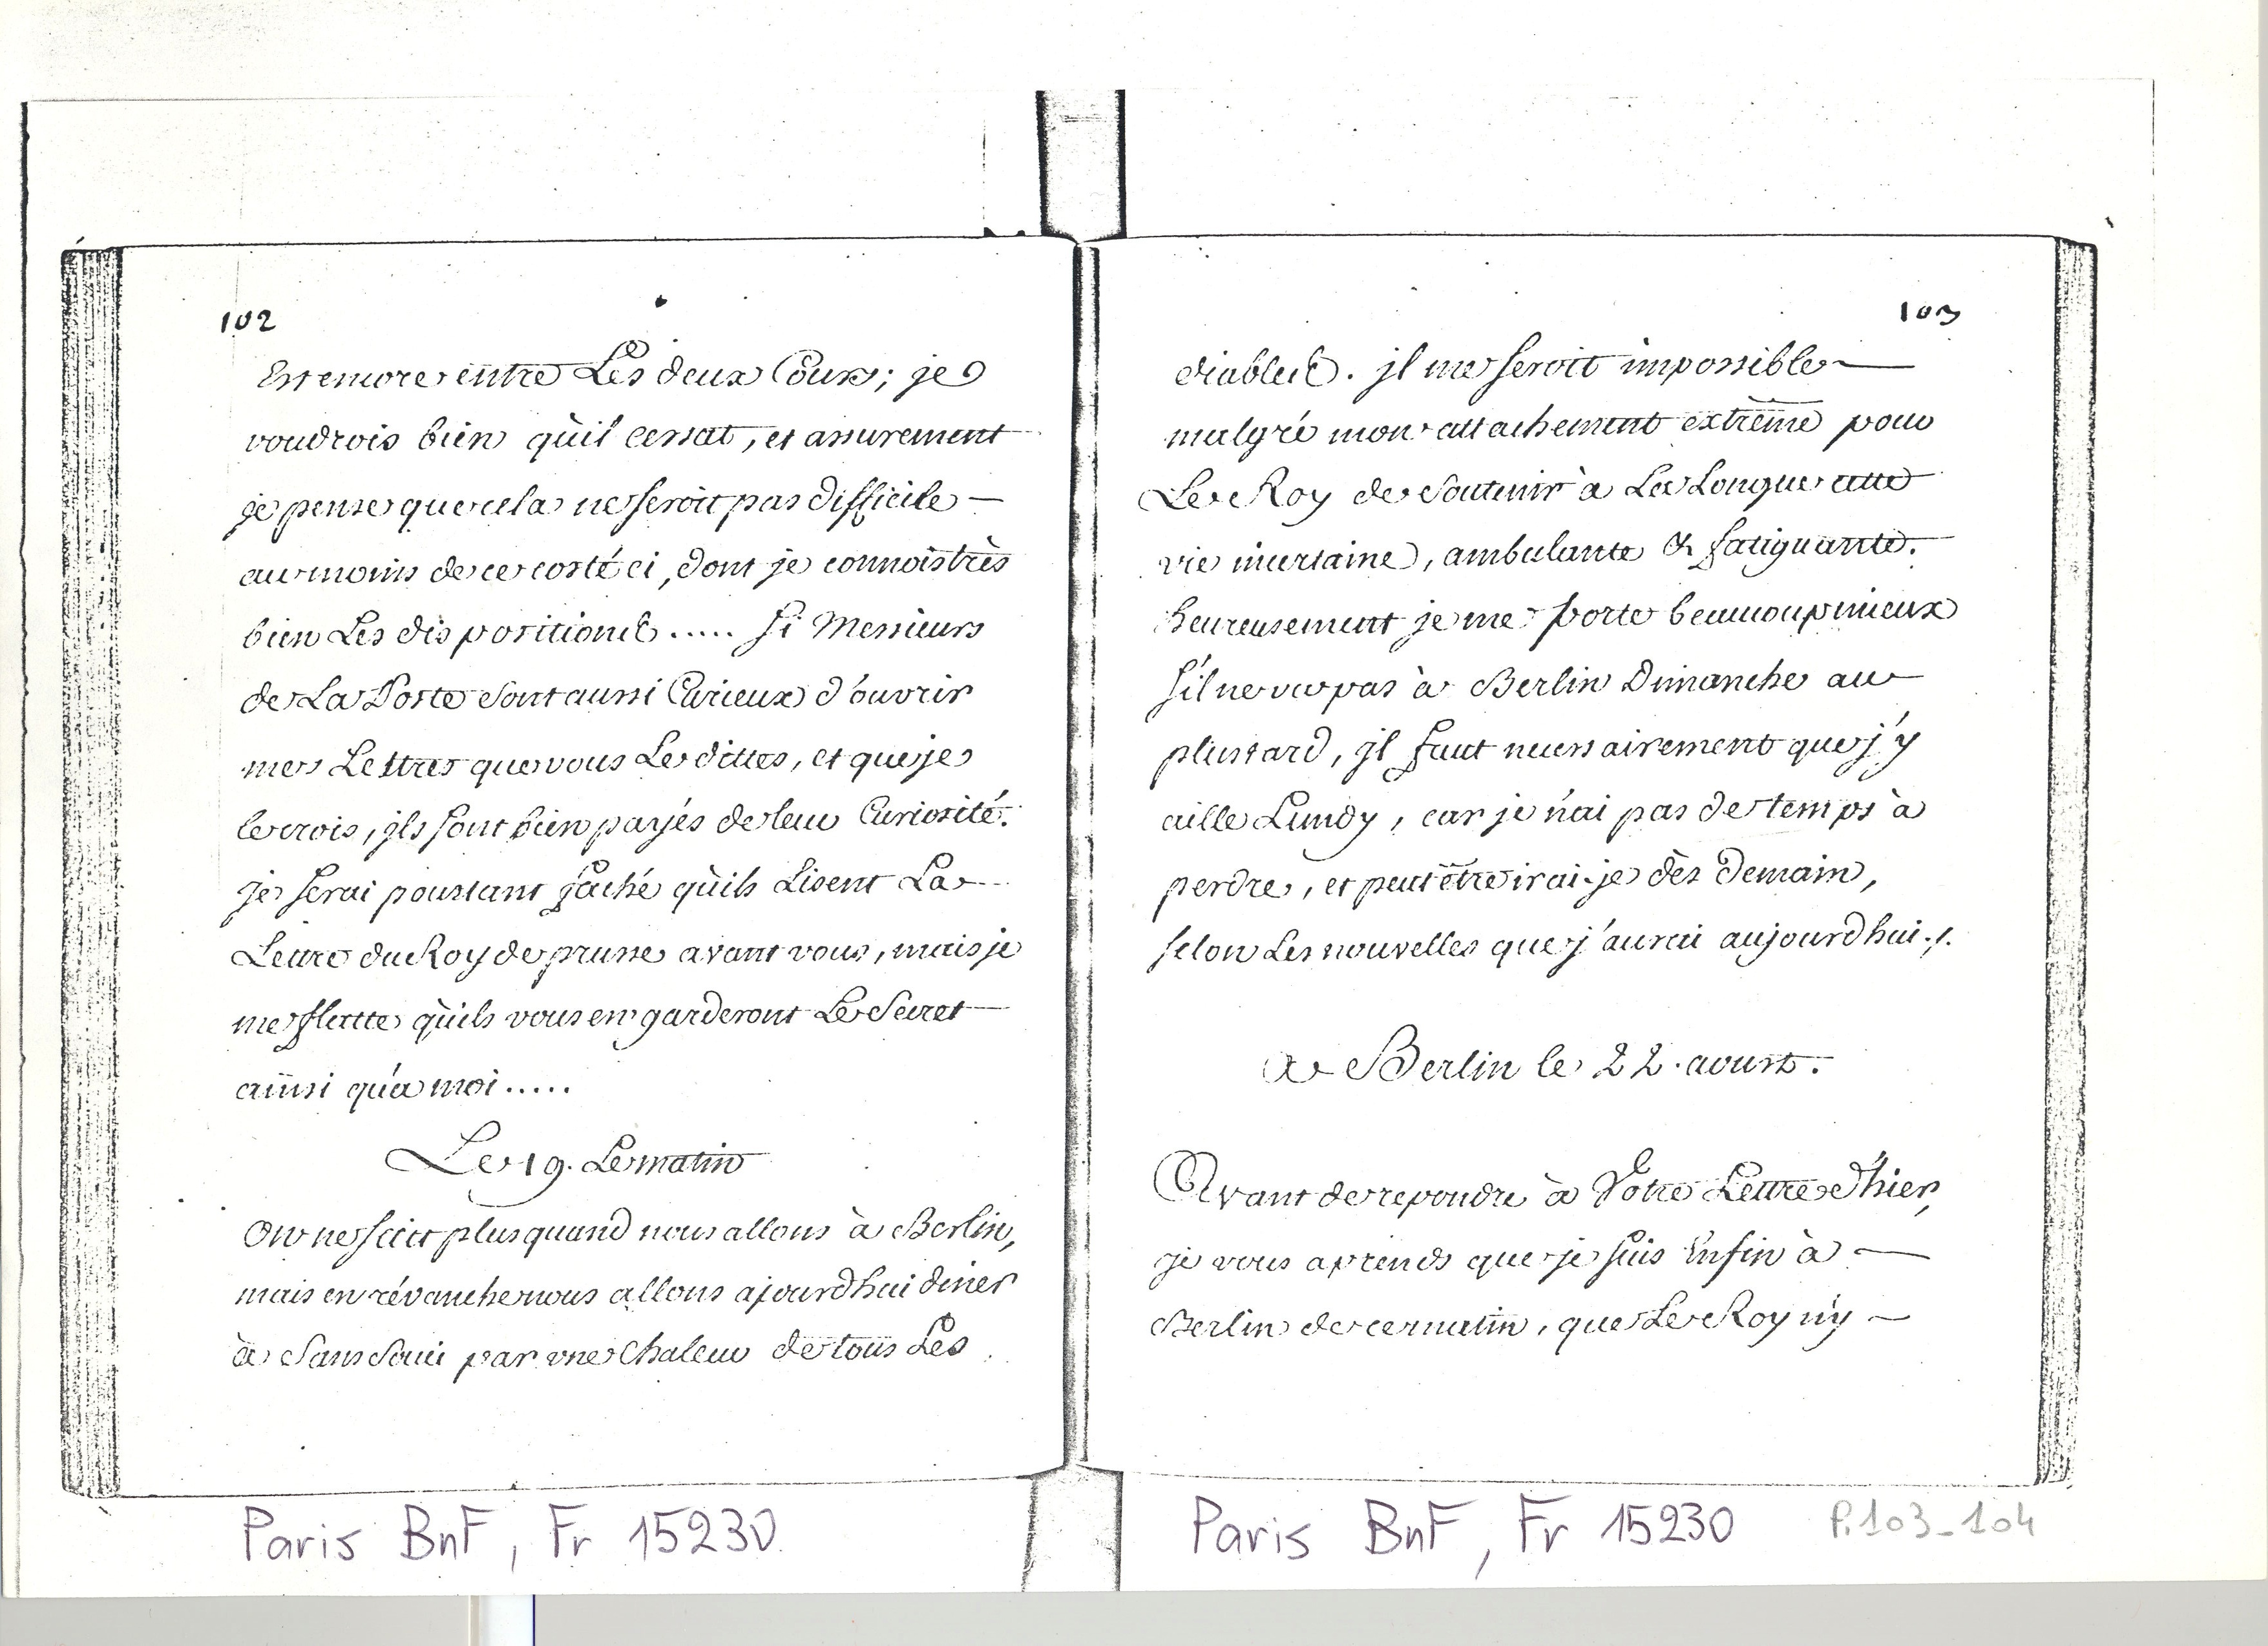 102
Est encore entre Les deux Cours; je
voudrois bien qu'il cessat, et assurement
je pense que cela ne seroit pas difficile —
au moins de ce costé ci, dont je connois très
bien Les dispositions ..... Si Messieurs
de La Poste sont aussi Curieux d'ouvrir
mes Lettres que vous Le dittes, et que je
le crois, jls sont bien payés de leur Curiosité.
je serai pourtant faché qu'ils Lisent La
Lettre du Roy de prusse avant vous, mais je
me flatte qu'ils vous en garderont Le Secret
ainsi qu'a moi .....
Le 19. Le matin
On ne sait plus quand nous allons à Berlin,
mais en révanche nous allons ajourd'hui diner
à Sans Souci par une Chaleur de tous Les
103
diables. jl me seroit impossible —
malgré mon attachement extrême pour
Le Roy de Soutenir à La Longue cette
vie incertaine, ambulante & fatiguante.
heureusement je me porte beaucoup mieux
s'il ne va pas à Berlin Dimanche au
plustard, jl faut necessairement que j'y
aille Lundy, car je n'ai pas de temps à
perdre, et peut être irai-je dès Demain,
selon Les nouvelles que j'aurai aujourd'hui ./.
A Berlin le 22. aoust.
Avant de repondre à Votre Lettre d'hier,
je vous aprends que je suis Enfin à —
Berlin de ce matin, que Le Roy n'y —
Paris BnF, Fr 15230
Paris BnF, Fr 15230 P.103-104